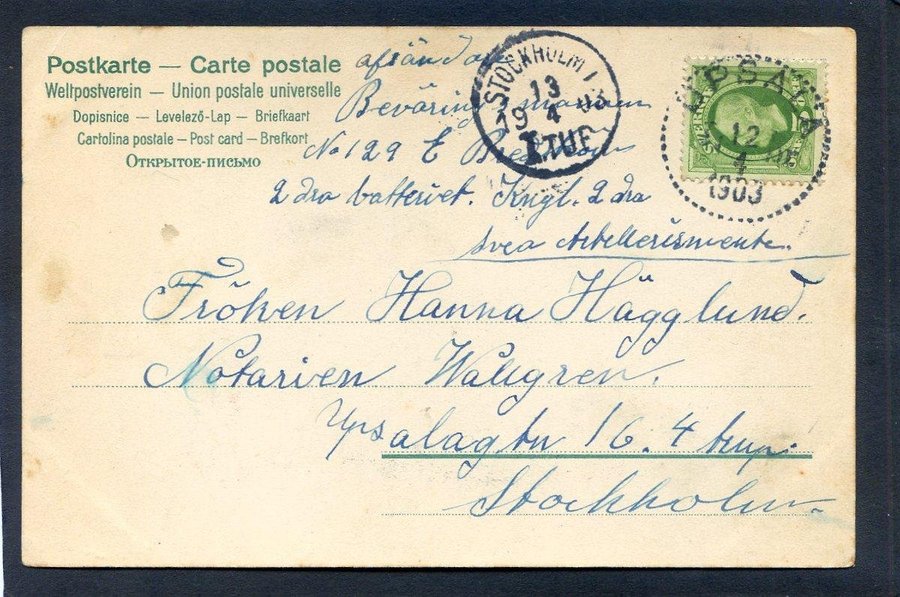 Postkarte — Carte postale
Weltpostverein — Union postale universelle
Dopisnice — Levelező-Lap — Briefkaart
Cartolina postale — Post card — Brefkort
Открытое-письмо
afsändare
Beväringsmannen
No 129 E
2 dra batteriet. Kngl. 2 dra
svea Artelleriremente.
STOCKHOLM 1
13
4
19 03
I. TUF
UPSALA
12
4
1903
Fröken Hanna Hägglund.
Notarien Wallgren.
Upsalagtn 16. 4 trup.
Stockholm